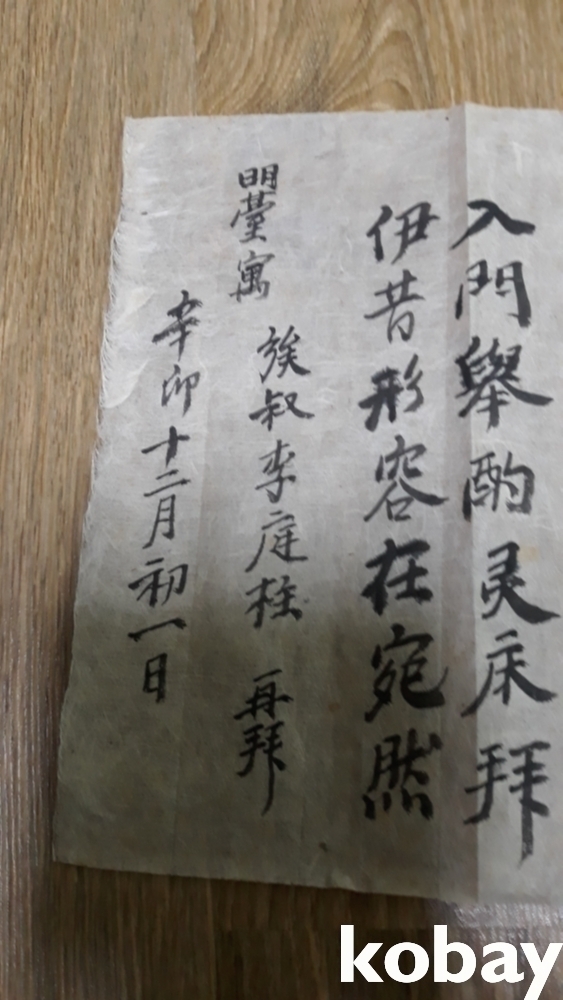 入門擧酌灵床拜
伊昔形容在宛然
明臺寓 族叔李庭柱 再拜
辛卯十二月初一日
kobay